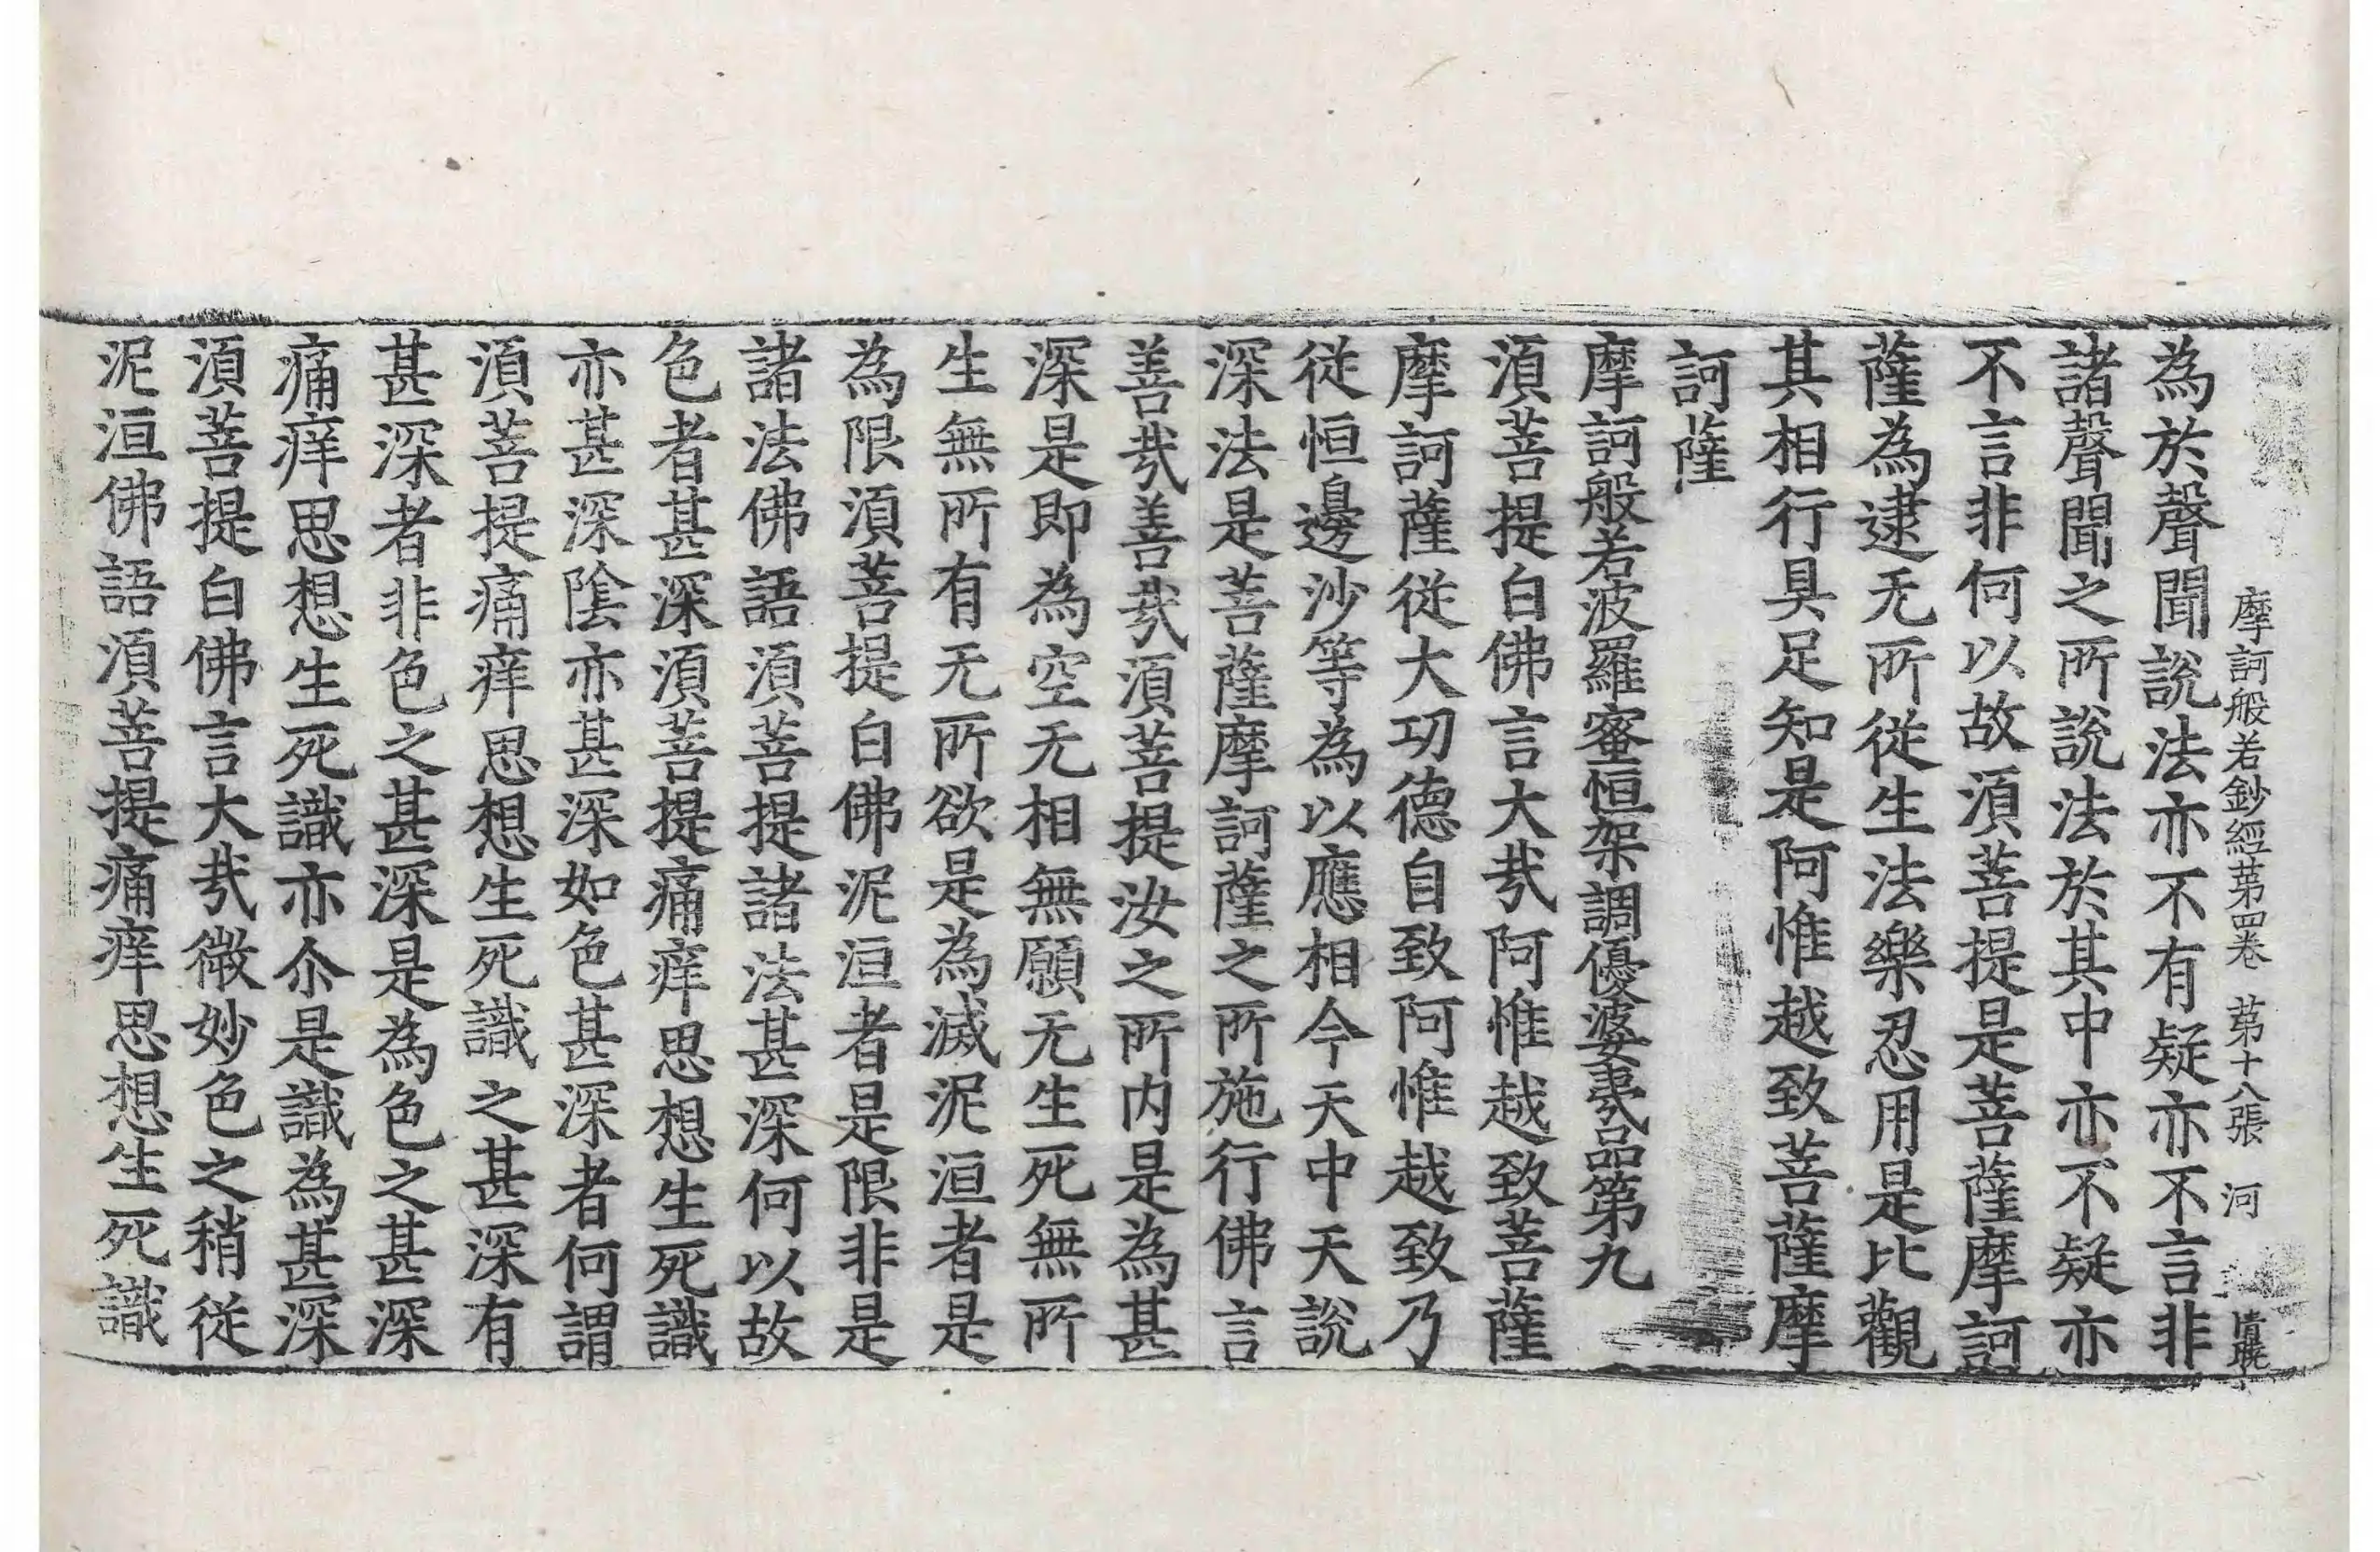 摩訶般若鈔經第四卷　第十八張　河
為於聲聞說法亦不有疑亦不言非
諸聲聞之所說法於其中亦不疑亦
不言非何以故須菩提是菩薩摩訶
薩為逮无所從生法樂忍用是比觀
其相行具足知是阿惟越致菩薩摩
訶薩
摩訶般若波羅蜜恒架調優婆夷品第九
須菩提白佛言大㢤阿惟越致菩薩
摩訶薩從大功德自致阿惟越致乃
從恒邊沙等為以應相今天中天說
深法是菩薩摩訶薩之所施行佛言
善㢤善㢤須菩提汝之所内是為甚
深是即為空无相無願无生死無所
生無所有无所欲是為滅泥洹者是
為限須菩提白佛泥洹者是限非是
諸法佛語須菩提諸法甚深何以故
色者甚深須菩提痛痒思想生死識
亦甚深陰亦甚深如色甚深者何謂
須菩提痛痒思想生死識之甚深有
甚深者非色之甚深是為色之甚深
痛痒思想生死識亦尒是識為甚深
須菩提白佛言大㢤微妙色之稍從
泥洹佛語須菩提痛痒思想生死識